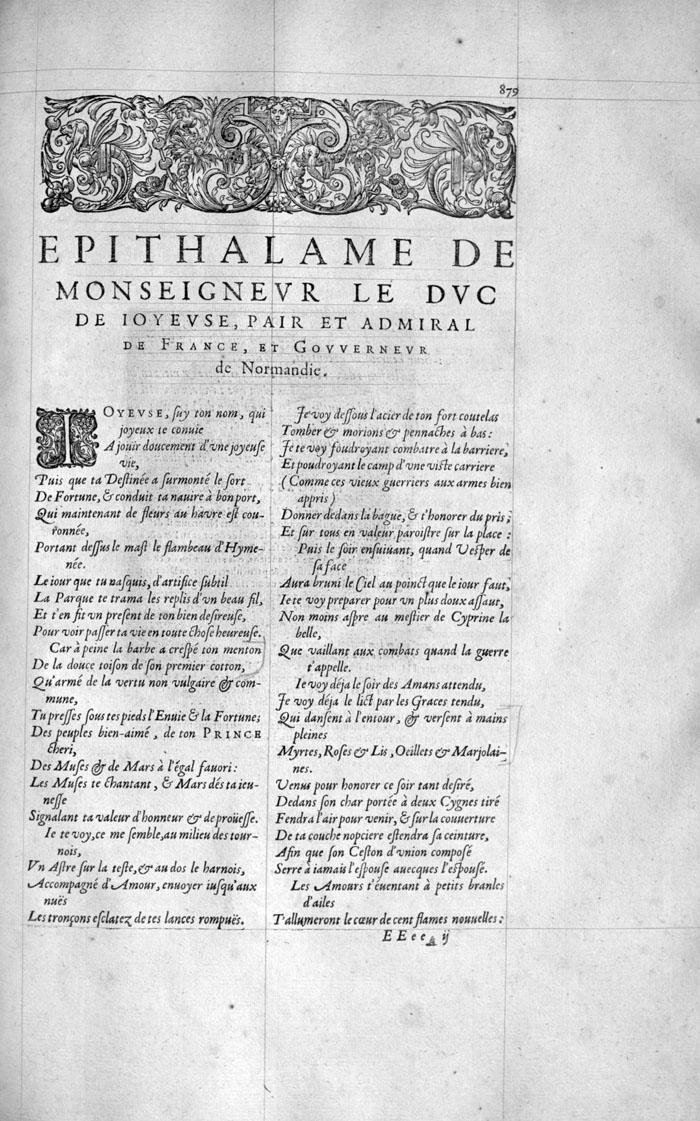 879
EPITHALAME DE
MONSEIGNEVR LE DVC
DE IOYEVSE, PAIR ET ADMIRAL
DE FRANCE, ET GOVVERNEVR
de Normandie.
IOYEVSE, suy ton nom, qui
joyeux te conuie
A jouir doucement d'vne joyeuse
vie,
Puis que ta Destinée a surmonté le sort
De Fortune, & conduit ta nauire à bon port,
Qui maintenant de fleurs au havre est cou-
ronnée,
Portant dessus le mast le flambeau d'Hyme-
née.
Le iour que tu nasquis, d'artifice subtil
La Parque te trama les replis d'vn beau fil,
Et t'en fit vn present de ton bien desireuse,
Pour voir passer ta vie en toute chose heureuse.
Car à peine la barbe a crespé ton menton
De la douce toison de son premier cotton,
Qu'armé de la vertu non vulgaire & com-
mune,
Tu presses sous tes pieds l'Enuie & la Fortune;
Des peuples bien-aimé, de ton PRINCE
cheri,
Des Muses & de Mars à l'égal fauori:
Les Muses te chantant, & Mars dés ta ieu-
nesse
Signalant ta valeur d'honneur & de proüesse.
Ie te voy, ce me semble, au milieu des tour-
nois,
Vn Astre sur la teste, & au dos le harnois,
Accompagné d'Amour, enuoyer iusqu'aux
nuës
Les tronçons esclatez de tes lances rompuës.
Je voy dessous l'acier de ton fort coutelas
Tomber & morions & pennaches à bas:
Je te voy foudroyant combatre à la barriere,
Et poudroyant le camp d'vne viste carriere
(Comme ces vieux guerriers aux armes bien
appris)
Donner dedans la bague, & t'honorer du pris;
Et sur tous en valeur paroistre sur la place:
Puis le soir ensuiuant, quand Vesper de
sa face
Aura bruni le Ciel au poinct que le iour faut,
Ie te voy preparer pour vn plus doux assaut,
Non moins aspre au mestier de Cyprine la
belle,
Que vaillant aux combats quand la guerre
t'appelle.
Ie voy déja le soir des Amans attendu,
Je voy déja le lict par les Graces tendu,
Qui dansent à l'entour, & versent à mains
pleines
Myrtes, Roses & Lis, Oeillets & Marjolai-
nes.
Venus pour honorer ce soir tant desiré,
Dedans son char portée à deux Cygnes tiré
Fendra l'air pour venir, & sur la couuerture
De ta couche nopciere estendra sa ceinture,
Afin que son Ceston d'vnion composé
Serre à iamais l'espouse auecques l'espousé.
Les Amours t'éuentant à petits branles
d'ailes
T'allumeront le cœur de cent flames nouuelles:
EEee ij